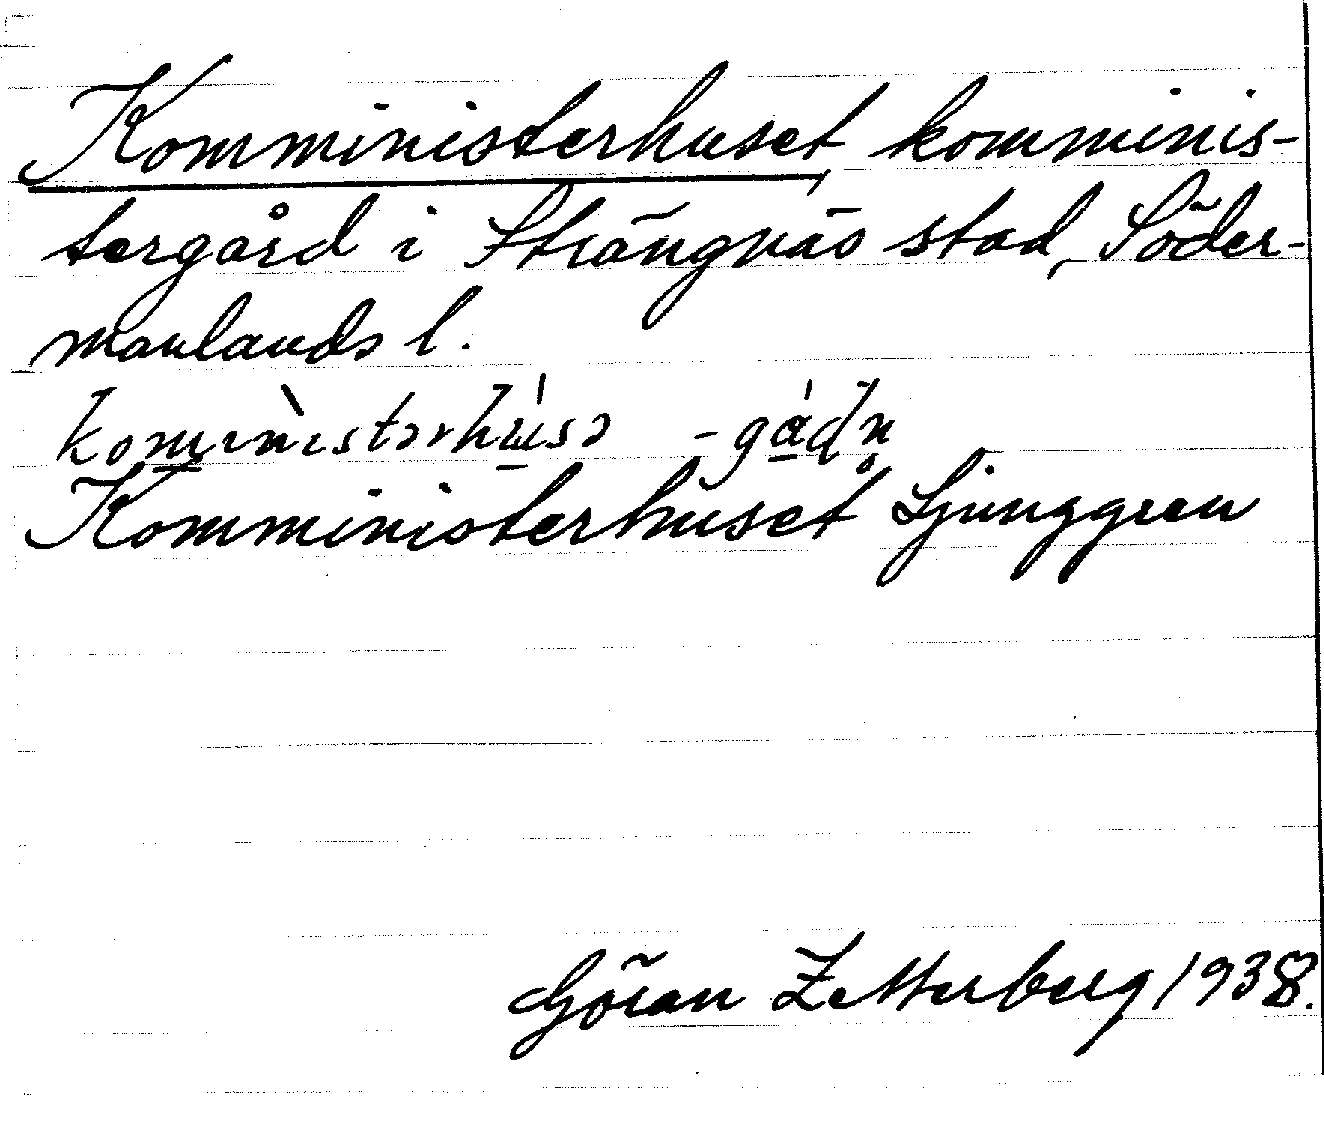 Komministerhuset, komminis-
tergård i Strängnäs stad, Söder-
manlands l.
Komministerhuset Ljunggren
Göran Zetterberg 1938.